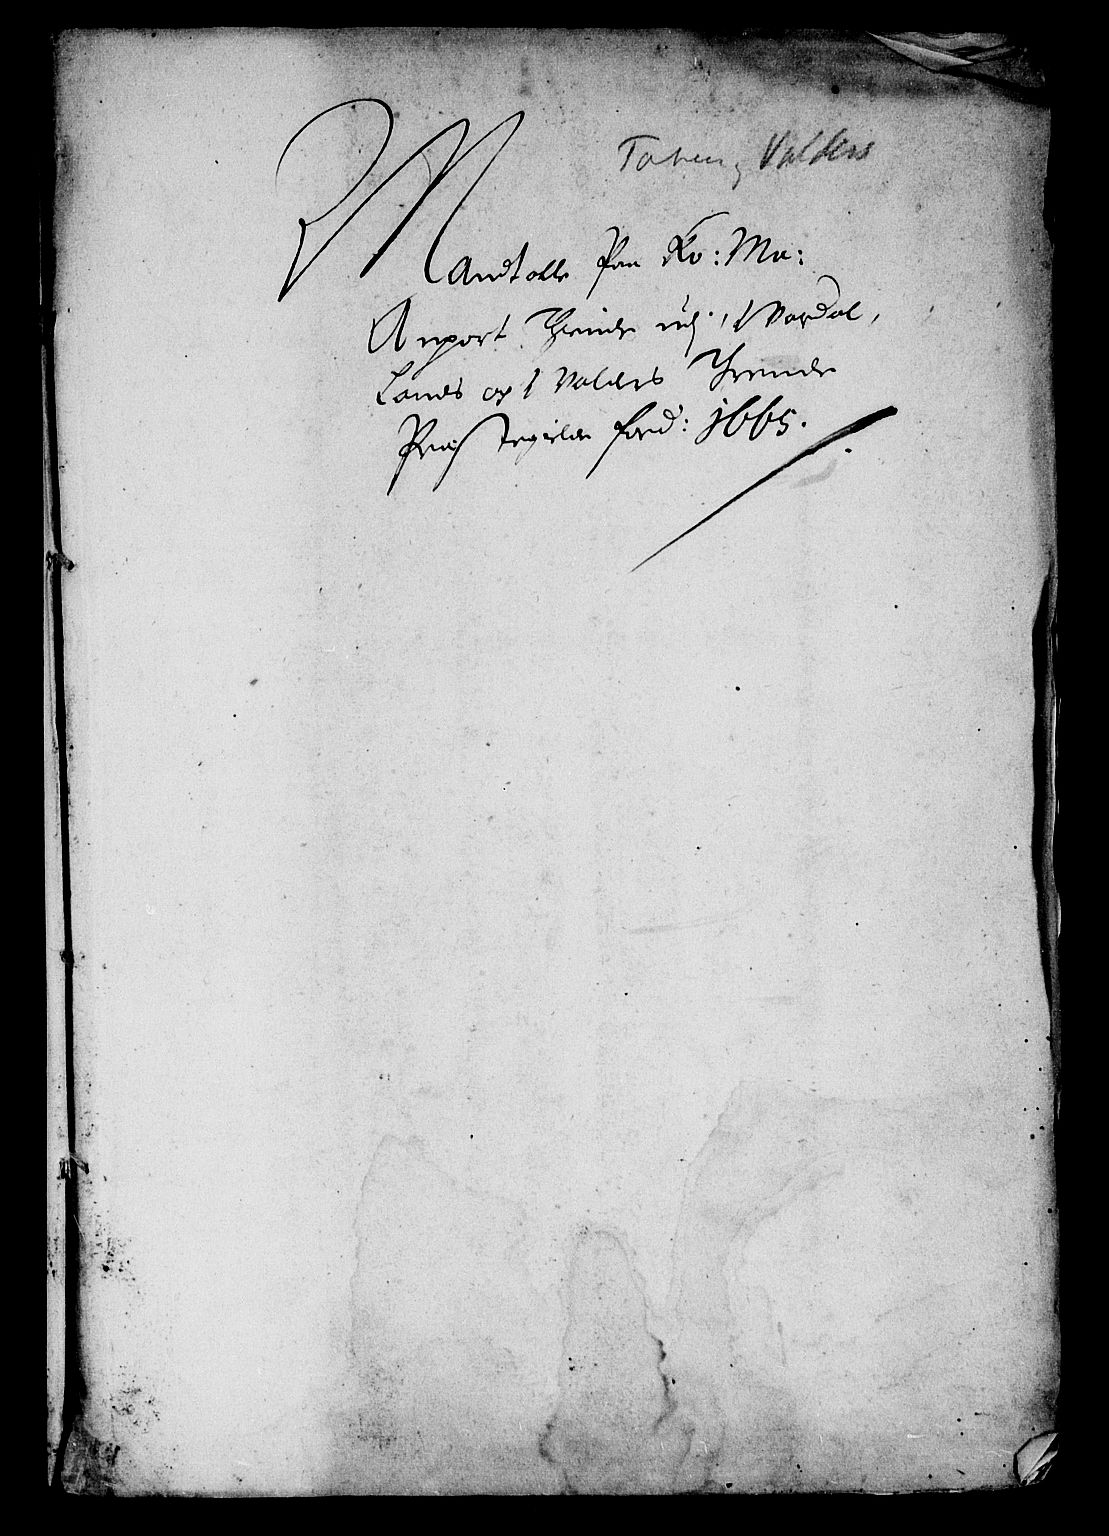 Toten, Valders
Mandtalle Paa Ko: Ma:
Anpart Thiende udj, Wardal,
Lands og Valders Thiende
Præstegielde for: 1665.